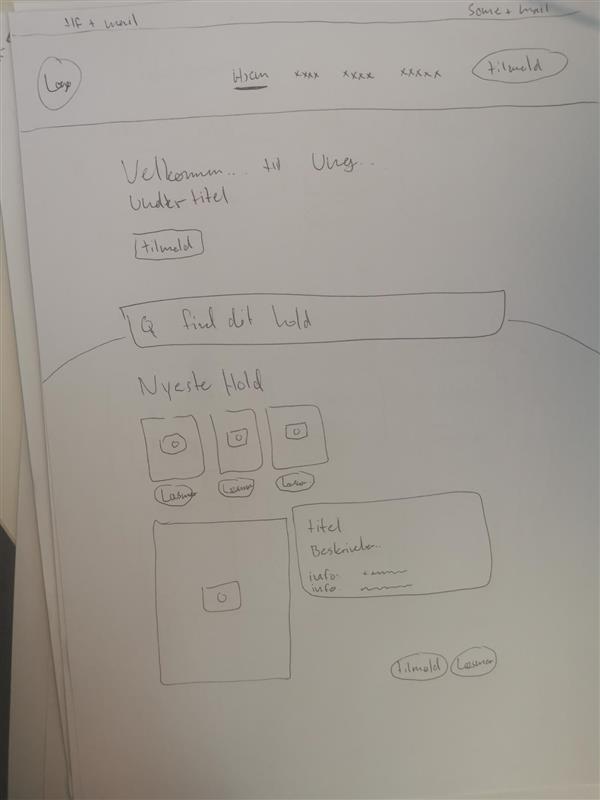 tlf + mail
Some + mail
Logo
Hjem xxxx xxxx xxxxx tilmeld
Velkommen... til Ung...
Undertitel
tilmeld
find dit hold
Nyeste Hold
Læsmer Læsmer Læsmer
titel
Beskrivelse..
info:
info:
tilmeld Læsmer